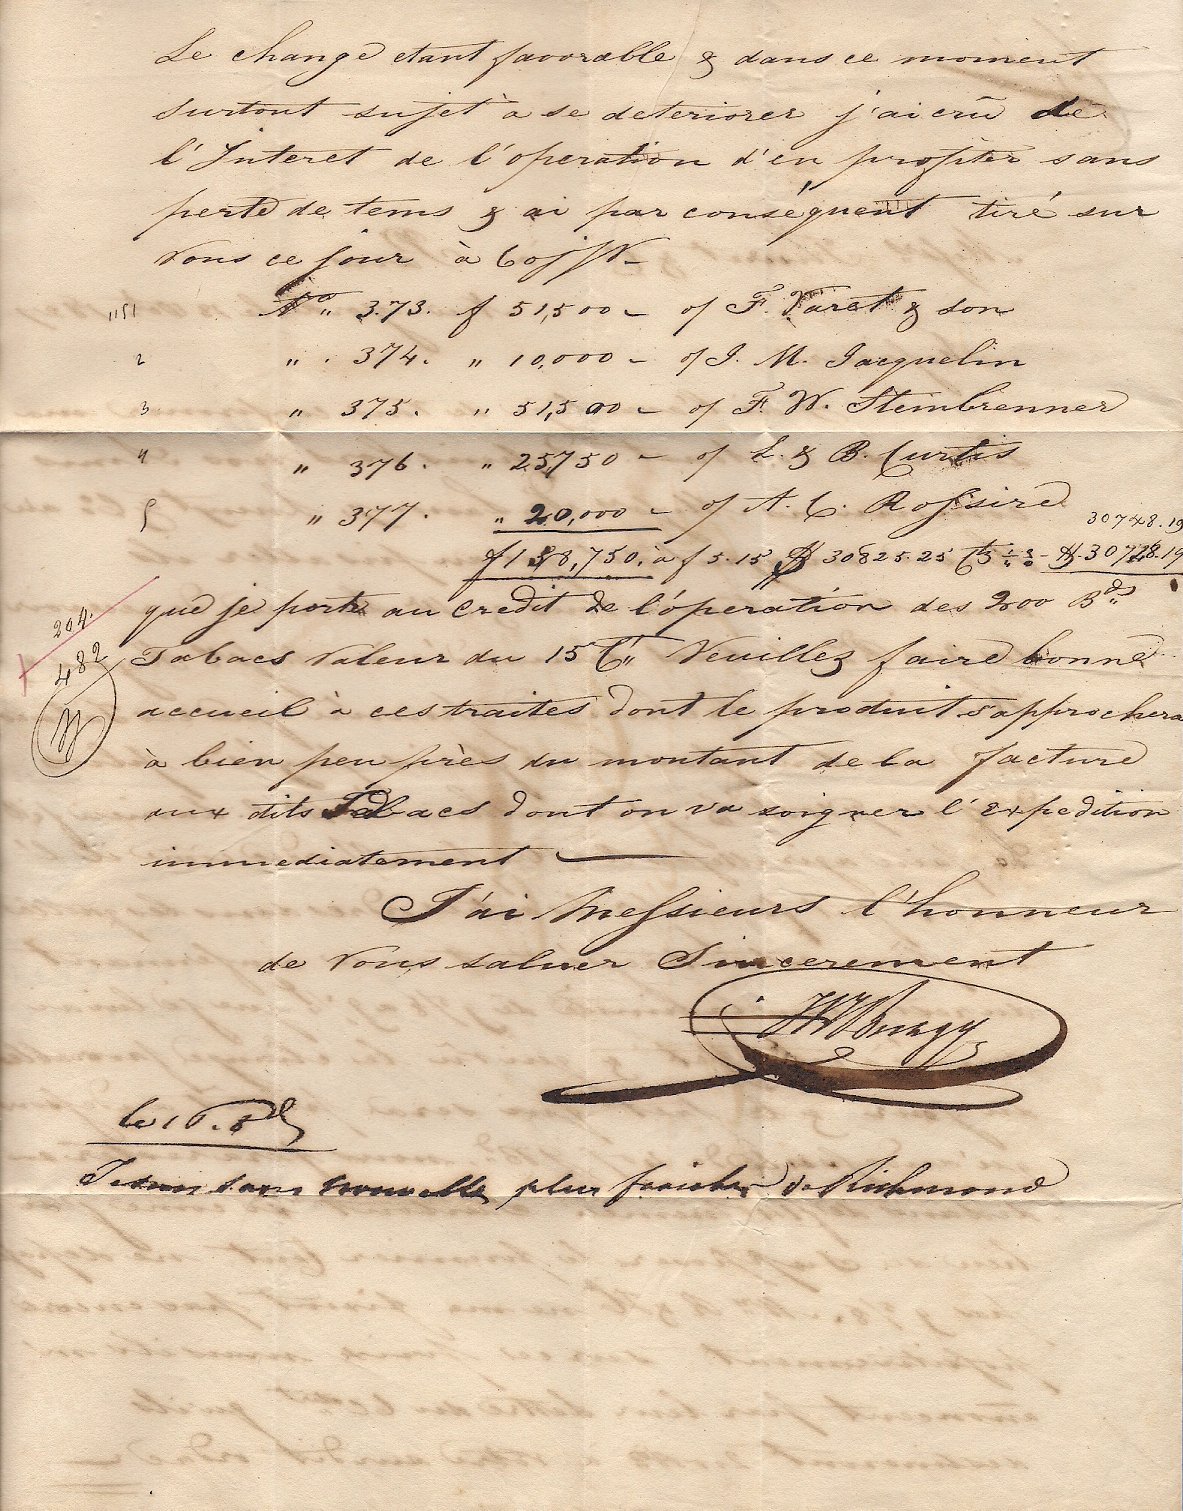 Le change etant favorable & dans ce moment
surtout sujet à se deteriorer j'ai crû de
l'Interet de l'operation d'en profiter sans
perte de tems & ai par conséquent tiré sur
vous ce jour à 60 j/
1151 No " 373. f 51,500 - of F. Varet & son
2 " . 374. " 10,000 - of J. M. Jacquelin
3 " 375. " 51,500 - of F. W. Steinbrenner
4 " 376. " 25,750 - of L. & B. Curtis
5 " 377. " 20,000 - of A. C. Rossire
30748.19
f 158,750. à f 5.15 $ 30825.25 $ 30748.19
que je porte au credit de l'operation des 200 Bds
204.
Tabacs valeur du 15 Ct " Veuillez faire bonne
482
accueil à ces traites dont le produit s'approchera
à bien peu près du montant de la facture
aux dits Tabacs dont on va soigner l'expedition
immediatement
J'ai Messieurs l'honneur
de vous saluer Sincerement
le 16.
Je suis sans nouvelles plus fraiches de Richmond